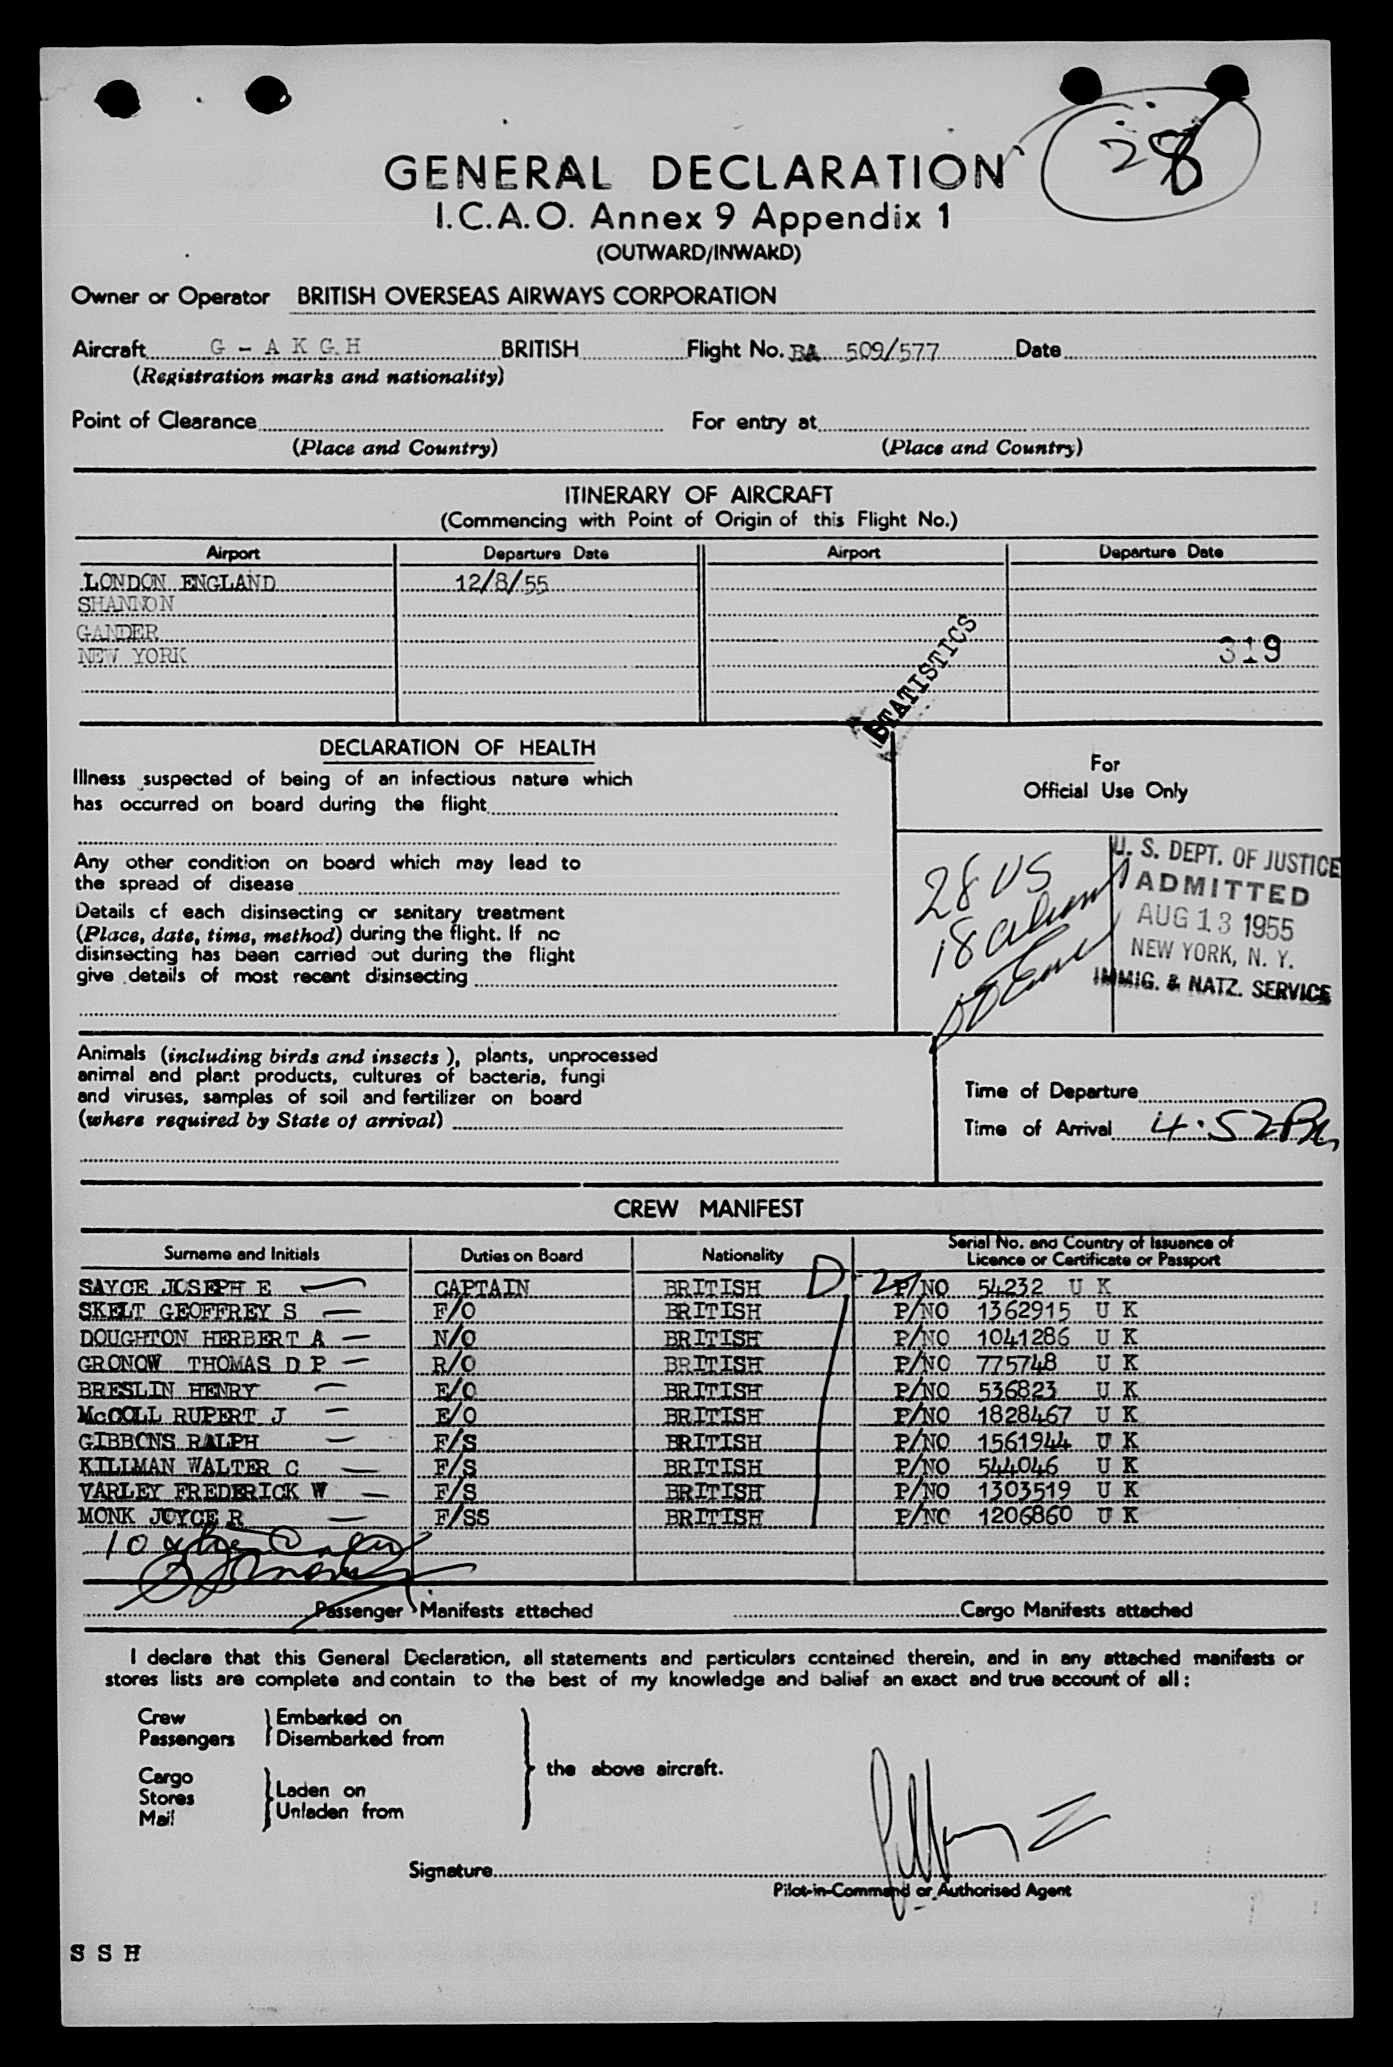 28
GENERAL DECLARATION
I.C.A.O. Annex 9 Appendix 1
(OUTWARD/INWARD)
Owner or Operator BRITISH OVERSEAS AIRWAYS CORPORATION
Aircraft G - A K G H BRITISH Flight No. BA 509/577 Date
(Registration marks and nationality)
Point of Clearance For entry at
(Place and Country) (Place and Country)
ITINERARY OF AIRCRAFT
(Commencing with Point of Origin of this Flight No.)
Airport Departure Date Airport Departure Date
LONDON ENGLAND 12/8/55
SHANNON
GANDER
NEW YORK 319
STATISTICS
DECLARATION OF HEALTH
Illness suspected of being of an infectious nature which
has occurred on board during the flight
Any other condition on board which may lead to
the spread of disease
Details of each disinsecting or sanitary treatment
(Place, date, time, method) during the flight. If no
disinsecting has been carried out during the flight
give details of most recent disinsecting
For
Official Use Only
28 US
18 aliens
U. S. DEPT. OF JUSTICE
ADMITTED
AUG 13 1955
NEW YORK, N. Y.
IMMIG. & NATZ. SERVICE
Animals (including birds and insects), plants, unprocessed
animal and plant products, cultures of bacteria, fungi
and viruses, samples of soil and fertilizer on board
(where required by State of arrival)
Time of Departure
Time of Arrival 4.52 Pm
CREW MANIFEST
Surname and Initials Duties on Board Nationality Serial No. and Country of Issuance of
Licence or Certificate or Passport
SAYCE JOSEPH E CAPTAIN BRITISH D-2 P/NO 54232 U K
SKELT GEOFFREY S F/O BRITISH P/NO 1362915 U K
DOUGHTON HERBERT A N/O BRITISH P/NO 1041286 U K
GRONOW THOMAS D P R/O BRITISH P/NO 775748 U K
BRESLIN HENRY E/O BRITISH P/NO 536823 U K
McCOLL RUPERT J E/O BRITISH P/NO 1828467 U K
GIBBONS RALPH F/S BRITISH P/NO 1561944 U K
KILLMAN WALTER C F/S BRITISH P/NO 544046 U K
VARLEY FREDERICK W F/S BRITISH P/NO 1303519 U K
MONK JOYCE R F/SS BRITISH P/NO 1206860 U K
10
Passenger Manifests attached Cargo Manifests attached
I declare that this General Declaration, all statements and particulars contained therein, and in any attached manifests or
stores lists are complete and contain to the best of my knowledge and belief an exact and true account of all:
Crew Embarked on
Passengers Disembarked from
the above aircraft.
Cargo
Stores Laden on
Mail Unladen from
Signature
Pilot-in-Command or Authorised Agent
S S H